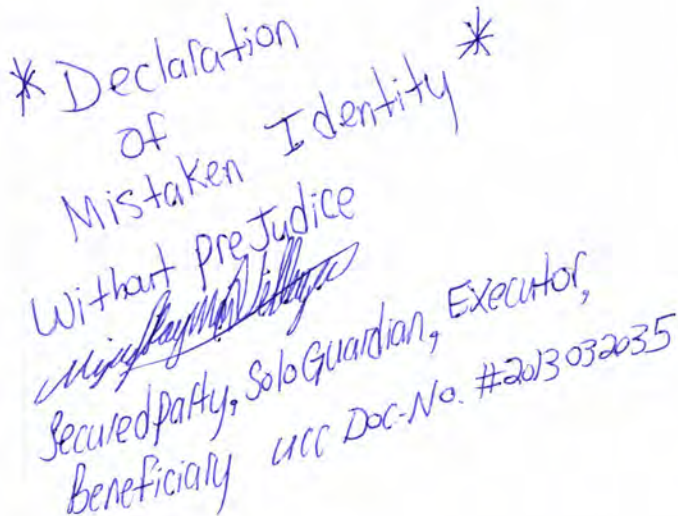 * Declaration
of
Mistaken Identity *
Without Prejudice
Secured Party, Solo Guardian, Executor,
Beneficiary UCC Doc-No. #2013032035